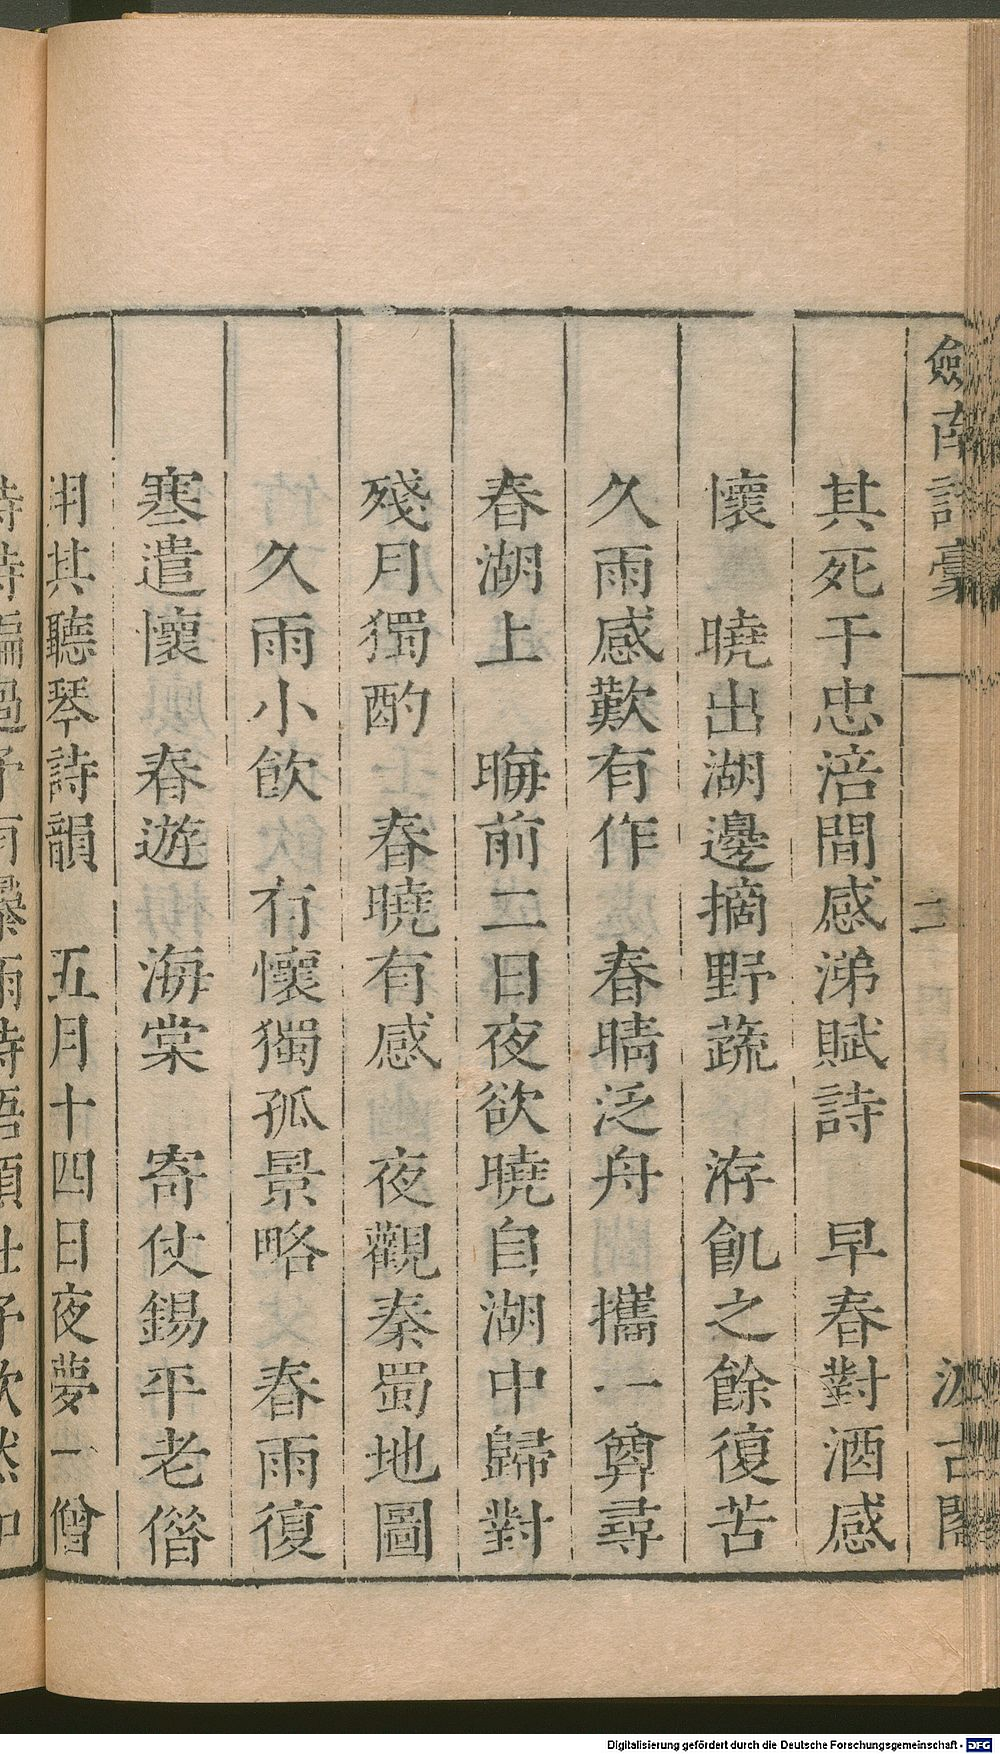 劍南詩稾
二
汲古閣
其死于忠涪間感涕賦詩　早春對酒感
懷　曉出湖邊摘野蔬　洊飢之餘復苦
久雨感歎有作　春晴泛舟　攜一尊尋
春湖上　晦前二日夜欲曉自湖中歸對
殘月獨酌　春曉有感　夜觀秦蜀地圖
久雨小飲　有懷獨孤景略　春雨復
寒遣懷　春遊　海棠　寄仗錫平老僣
用其聽琴詩韻　五月十四日夜夢一僧
Digitalisierung gefördert durch die Deutsche Forschungsgemeinschaft - DFG